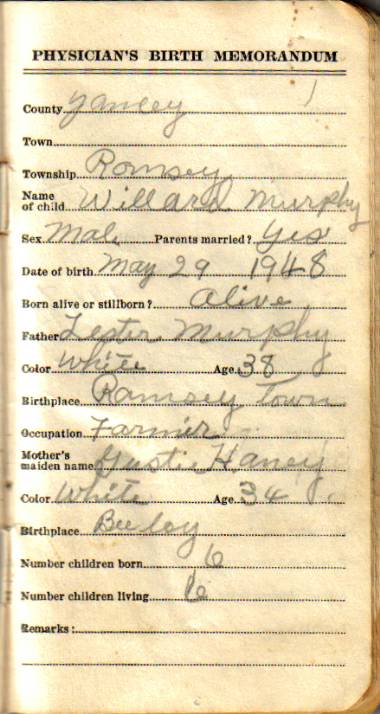 PHYSICIAN'S BIRTH MEMORANDUM
1
County Yancey
Town
Township Romsey
Name of child Willard Murphy
Sex Male Parents married? Yes
Date of birth May 29 1948
Born alive or stillborn? Alive
Father Lester Murphy
Color White Age 38
Birthplace Ramsey Town
Occupation Farmer
Mother's maiden name Haney
Color White Age 34
Birthplace
Number children born 6
Number children living 6
Remarks: